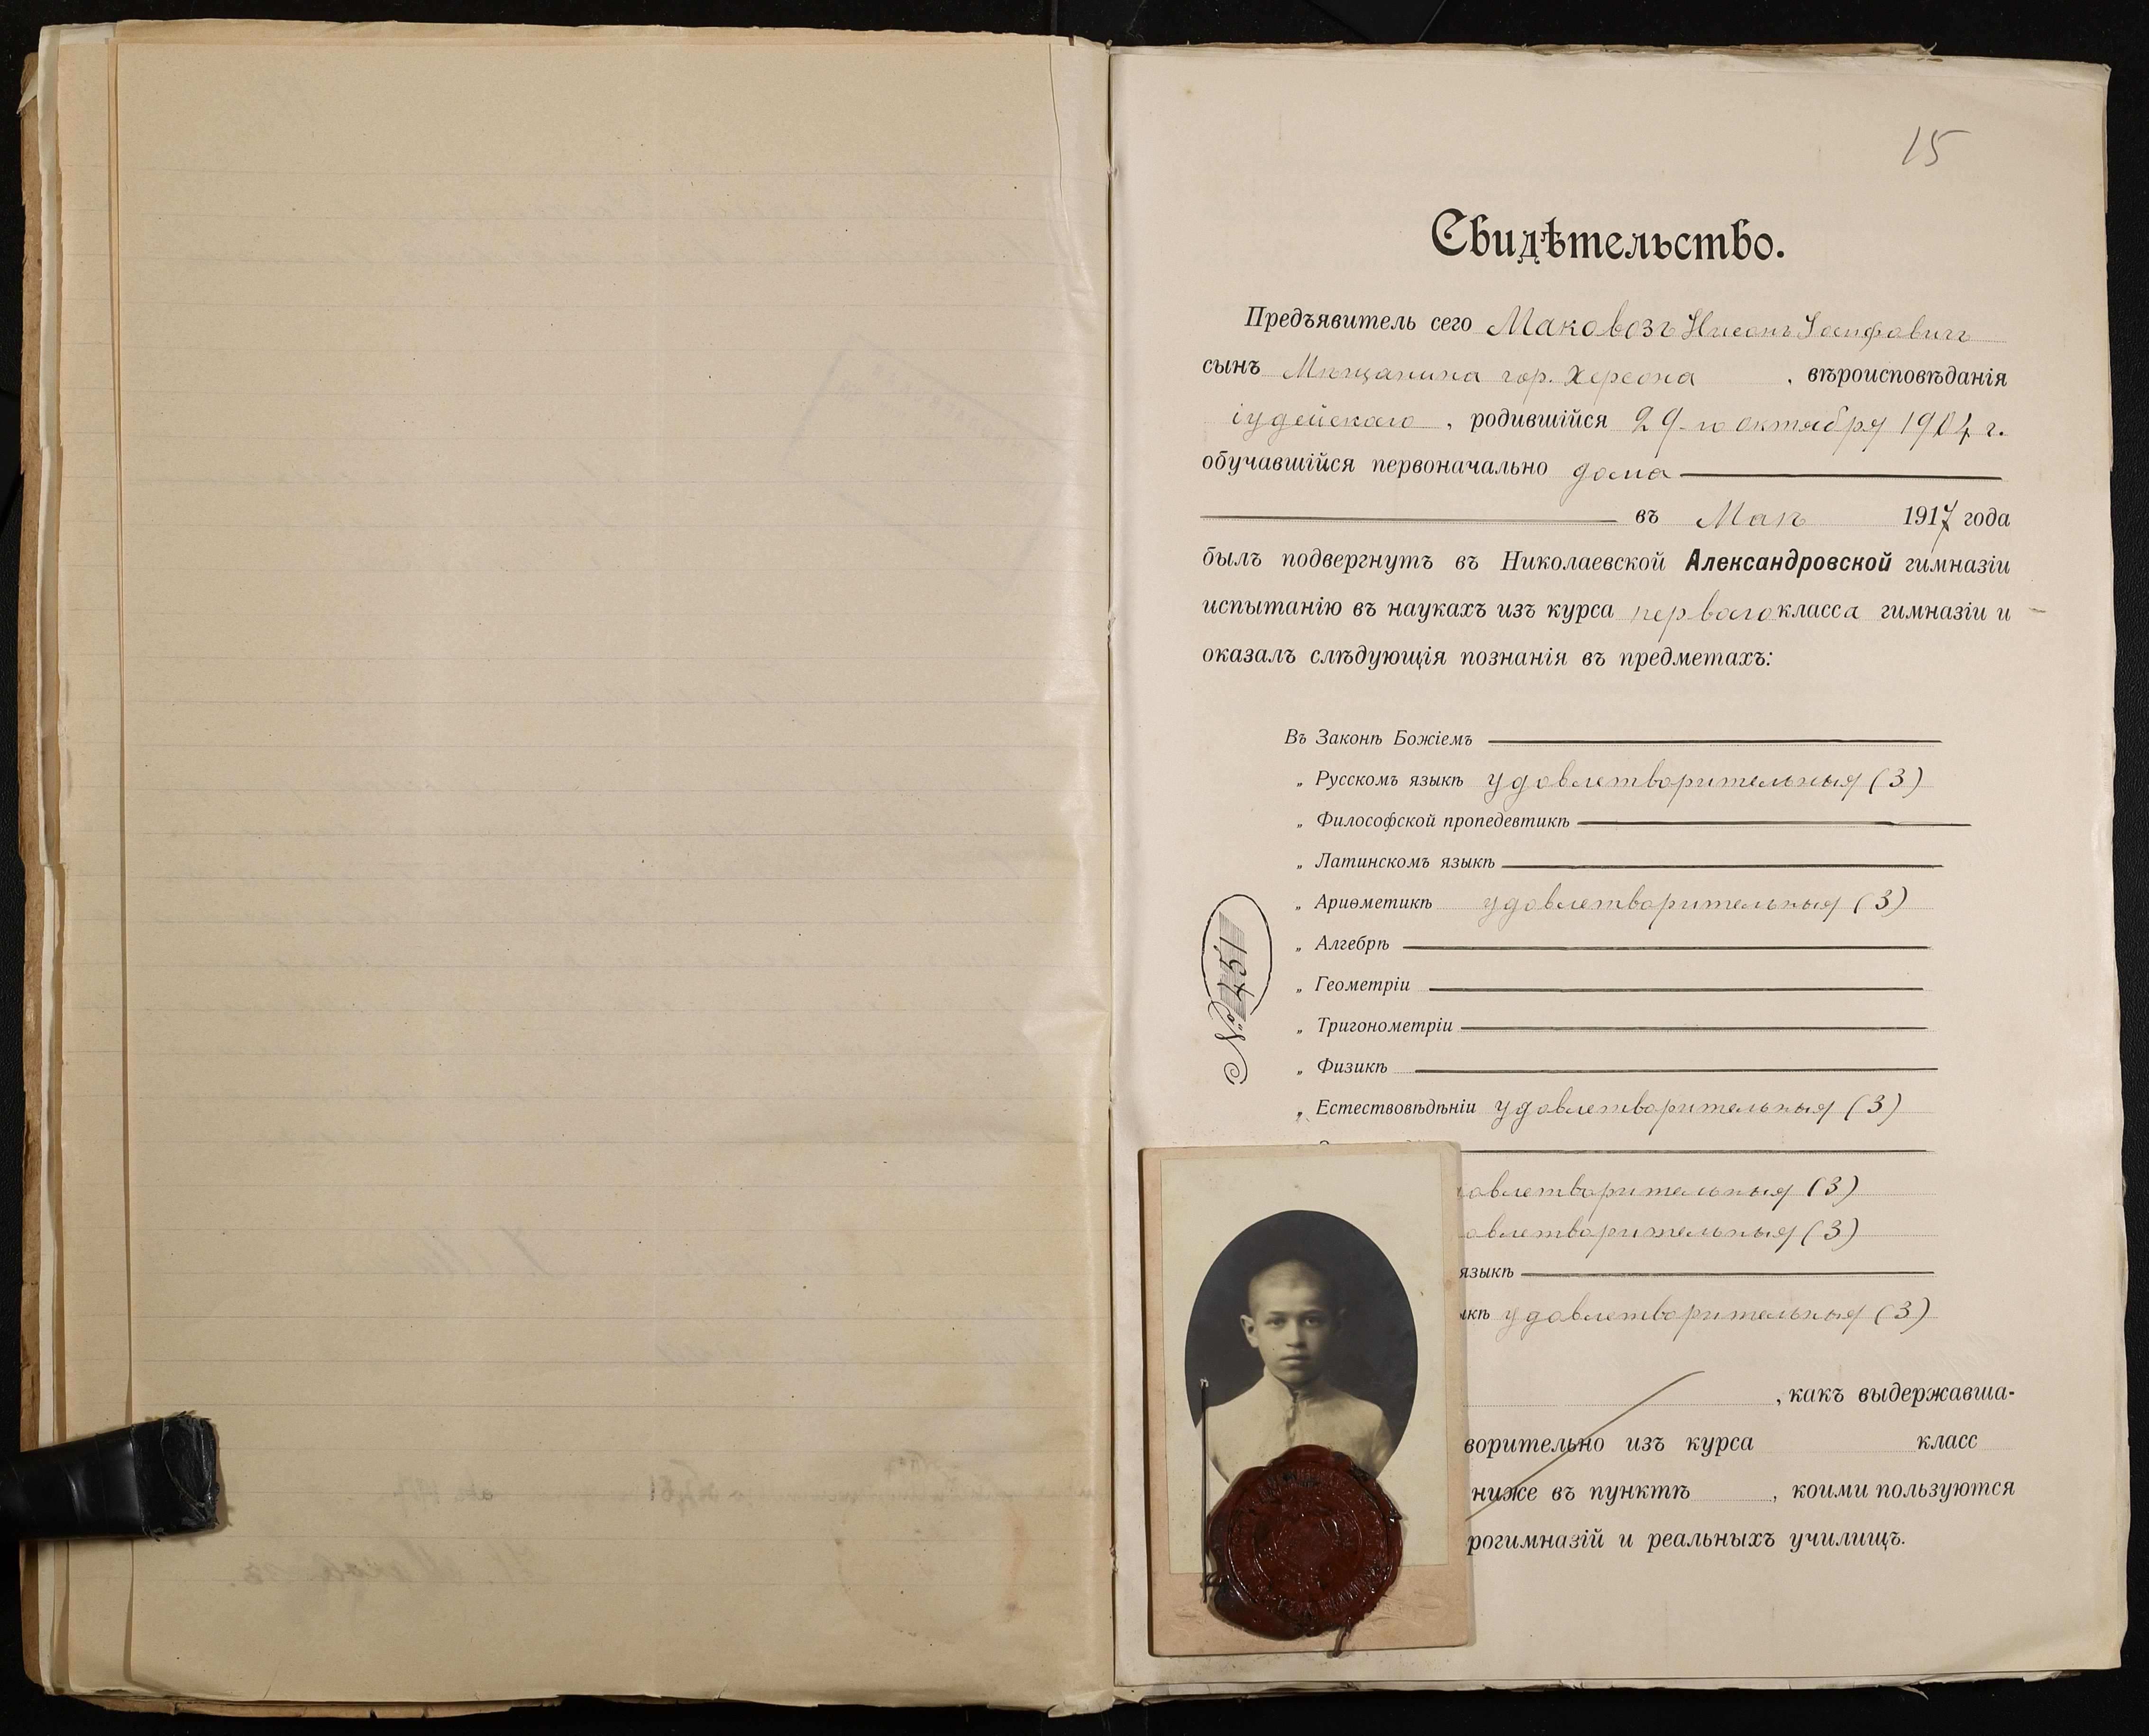 15
Свидѣтельство.
Предъявитель сего Маковозъ Нисонъ Іосифовичъ
сынъ Мѣщанина гор. Херсона , вѣроисповѣданія
іудейскаго , родившійся 29-го октября 1904 г.
обучавшійся первоначально дома
въ Маѣ 1917 года
былъ подвергнутъ въ Николаевской Александровской гимназіи
испытанію въ наукахъ изъ курса перваго класса гимназіи и
оказалъ слѣдующія познанія въ предметахъ:
Въ Законѣ Божіемъ
„ Русскомъ языкѣ удовлетворительныя (3)
„ Философской пропедевтикѣ
„ Латинскомъ языкѣ
„ Ариѳметикѣ удовлетворительныя (3)
„ Алгебрѣ
„ Геометріи
„ Тригонометріи
„ Физикѣ
„ Естествовѣдѣніи удовлетворительныя (3)
овлетворительныя (3)
овлетворительныя (3)
языкѣ
икѣ удовлетворительныя (3)
, какъ выдержавша-
ворительно изъ курса класс
ниже въ пунктѣ , коими пользуются
рогимназій и реальныхъ училищъ.
№ 1571